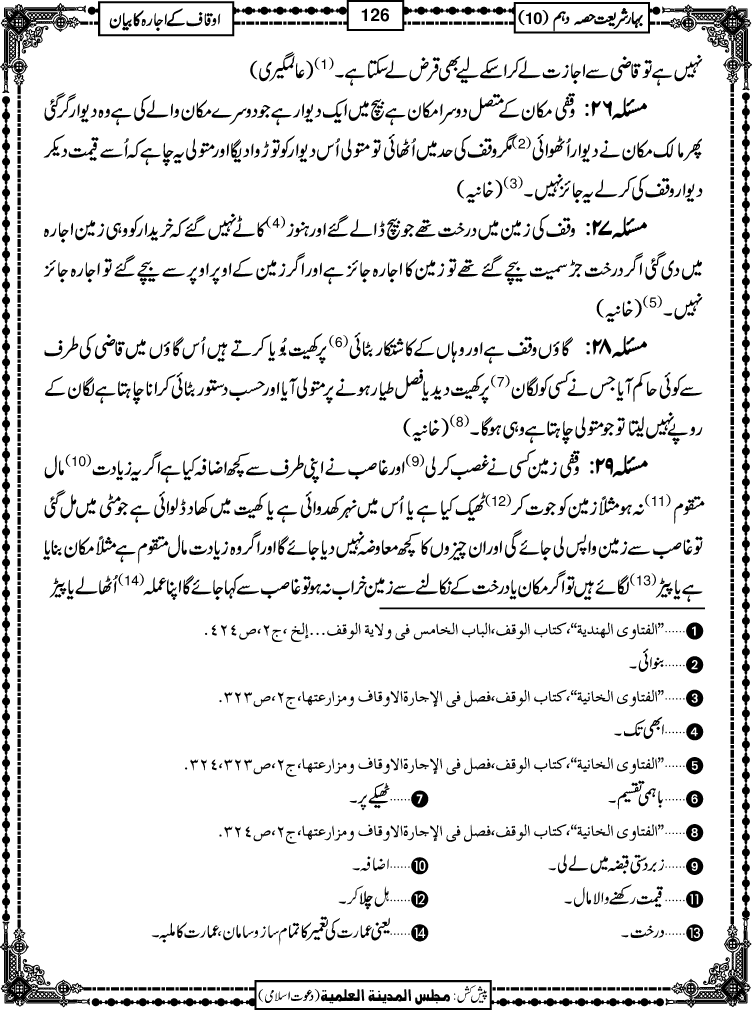 بہار شریعت حصہ دہم (10)
126
اوقاف کے اجارہ کا بیان
نہیں ہے تو قاضی سے اجازت لے کر اسکے لیے بھی قرض لے سکتا ہے۔(1) (عالمگیری)
مسئلہ ۲۶: وقفی مکان کے متصل دوسرا مکان ہے بیچ میں ایک دیوار ہے جو دوسرے مکان والے کی ہے وہ دیوار گر گئی
پھر مالک مکان نے دیوار اُٹھوائی(2) مگر وقف کی حد میں اُٹھائی تو متولی اُس دیوار کو توڑوا دیگا اور متولی یہ چاہے کہ اُسے قیمت دیکر
دیوار وقف کی کرلے یہ جائز نہیں۔(3) (خانیہ)
مسئلہ ۲۷: وقف کی زمین میں درخت تھے جو بیچ ڈالے گئے اور ہنوز(4) کاٹے نہیں گئے کہ خریدار کو وہی زمین اجارہ
میں دی گئی اگر درخت جڑ سمیت بیچے گئے تھے تو زمین کا اجارہ جائز ہے اور اگر زمین کے اوپر اوپر سے بیچے گئے تو اجارہ جائز
نہیں۔(5) (خانیہ)
مسئلہ ۲۸: گاؤں وقف ہے اور وہاں کے کاشتکار بٹائی(6) پر کھیت بُویا کرتے ہیں اُس گاؤں میں قاضی کی طرف
سے کوئی حاکم آیا جس نے کسی کو لگان(7) پر کھیت دیدیا فصل طیار ہونے پر متولی آیا اور حسب دستور بٹائی کرانا چاہتا ہے لگان کے
روپے نہیں لیتا تو جو متولی چاہتا ہے وہی ہوگا۔(8) (خانیہ)
مسئلہ ۲۹: وقفی زمین کسی نے غصب کرلی(9) اور غاصب نے اپنی طرف سے کچھ اضافہ کیا ہے اگر یہ زیادت(10) مال
متقوم(11) نہ ہو مثلاً زمین کو جوت کر(12) ٹھیک کیا ہے یا اُس میں نہر کھدوائی ہے یا کھیت میں کھاد ڈلوائی ہے جو مٹی میں مل گئی
تو غاصب سے زمین واپس لی جائے گی اور ان چیزوں کا کچھ معاوضہ نہیں دیا جائے گا اور اگر وہ زیادت مال متقوم ہے مثلاً مکان بنایا
ہے یا پیڑ(13) لگائے ہیں تو اگر مکان یا درخت کے نکالنے سے زمین خراب نہ ہو تو غاصب سے کہا جائے گا اپنا عملہ(14) اُٹھالے یا پیڑ
1 ......"الفتاوی الھندیۃ"،کتاب الوقف،الباب الخامس فی ولایۃ الوقف...إلخ ،ج۲،ص۴۲۴.
2 ......بنوائی۔
3 ......"الفتاوی الخانیۃ"،کتاب الوقف،فصل فی الإجارۃ الاوقاف ومزارعتھا،ج۲،ص۳۲۳.
4 ......ابھی تک۔
5 ......"الفتاوی الخانیۃ"،کتاب الوقف،فصل فی الإجارۃ الاوقاف ومزارعتھا،ج۲،ص۳۲۳،۳۲۴.
6 ......باہمی تقسیم۔ 7 ......ٹھیکے پر۔
8 ......"الفتاوی الخانیۃ"،کتاب الوقف،فصل فی الإجارۃ الاوقاف ومزارعتھا،ج۲،ص۳۲۴.
9 ......زبردستی قبضہ میں لے لی۔ 10 ......اضافہ۔
11 ......قیمت رکھنے والا مال۔ 12 ......ہل چلا کر۔
13 ......درخت۔ 14 ......یعنی عمارت کی تعمیر کا تمام ساز و سامان ،عمارت کا ملبہ۔
پیش کش: مجلس المدینۃ العلمیۃ (دعوت اسلامی)